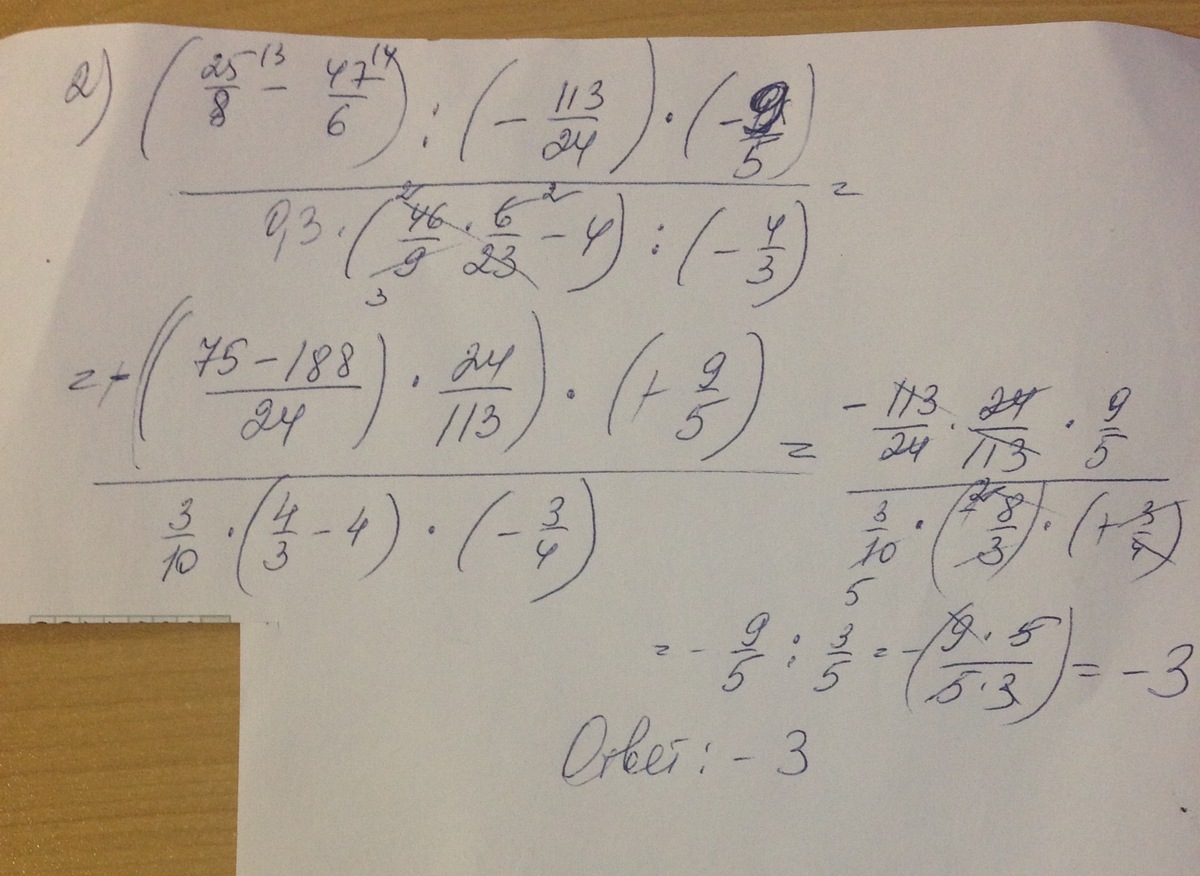 2) (25/8 ⁻¹³ - 47/6 ¹⁴) : (- 113/24) · (- 9/5)
0,3 · (46/9 · 6/23 - 4) : (- 4/3) =
= + ((75 - 188)/24) · 24/113) · (+ 9/5)
3/10 · (4/3 - 4) · (- 3/4) =
- 113/24 · 24/113 · 9/5
3/10 · (+ 8/3) · (+ 3/4)
5
= - 9/5 : 3/5 = - (9 · 5 / 5 · 3) = - 3
Ответ: - 3